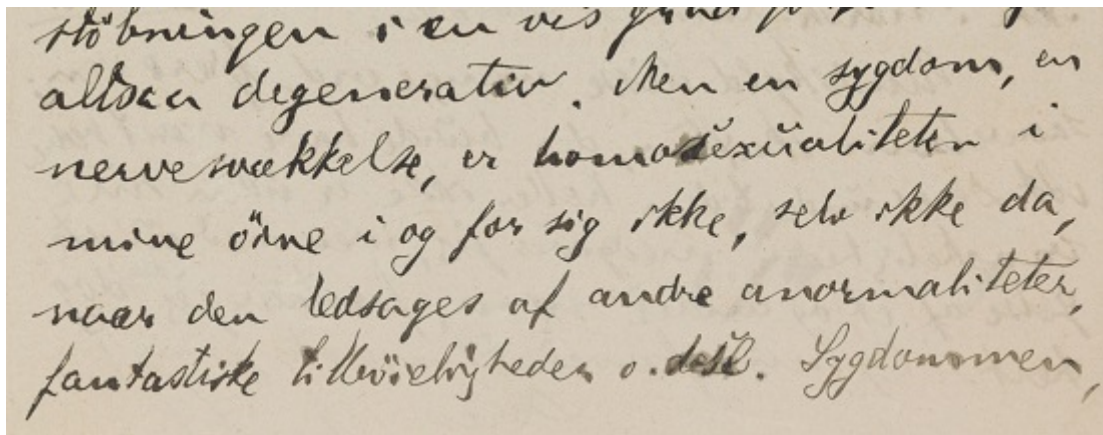 støbningen i en vis grad
altsaa degenerativ. Men en sygdom, en
nervesvækkelse, er homosexualiteten i
mine öine i og for sig ikke, selv ikke da,
naar den ledsages af andre anormaliteter,
fantastiske tilböieligheder o. desl. Sygdommen,